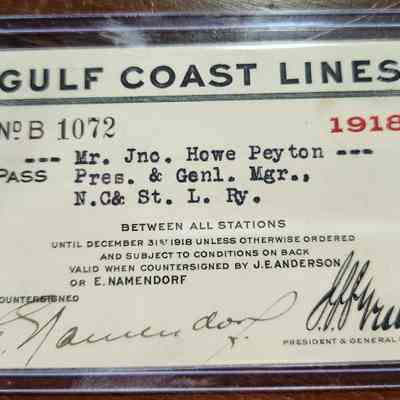 GULF COAST LINES
No B 1072 1918
--- Mr. Jno. Howe Peyton ---
PASS Pres. & Genl. Mgr.,
N.C& St. L. Ry.
BETWEEN ALL STATIONS
UNTIL DECEMBER 31ST 1918 UNLESS OTHERWISE ORDERED
AND SUBJECT TO CONDITIONS ON BACK
VALID WHEN COUNTERSIGNED BY J.E. ANDERSON
OR E. NAMENDORF
COUNTERSIGNED
E. Namendorf
PRESIDENT & GENERAL